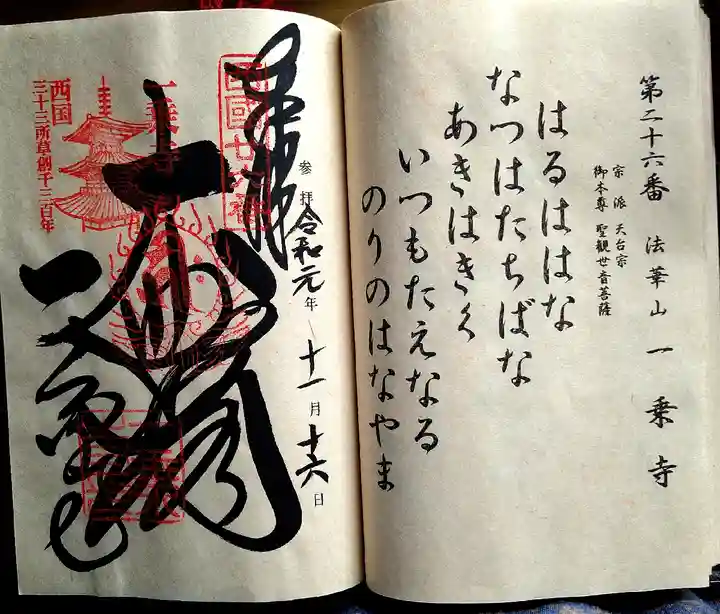 第二十六番 法華山 一乗寺
宗派 天台宗
御本尊 聖觀世音菩薩
はるははな
なつはたちばな
あきはきく
いつもたえなる
のりのはなやま
奉拝
参拝 令和元年 十一月 十六日
西國廿六番
大悲閣
一乗寺
一乗寺
西国
三十三所草創千三百年